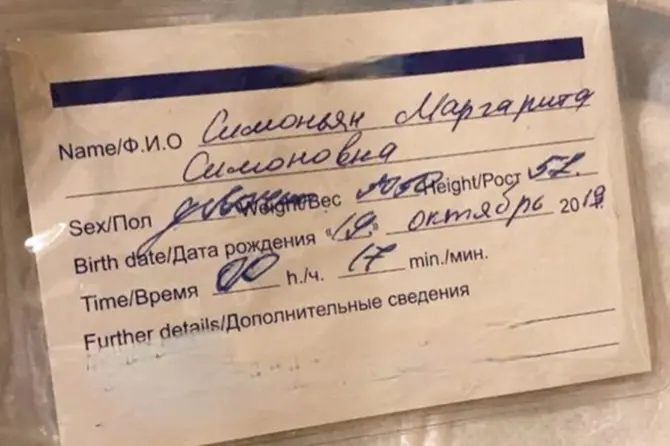 Name/Ф.И.О Симоньян Маргарита
Симоновна
Sex/Пол девочка Weight/Вес Height/Рост 51.
Birth date/Дата рождения «19» октябрь 2019
Time/Время 00 h./ч. 17 min./мин.
Further details/Дополнительные сведения